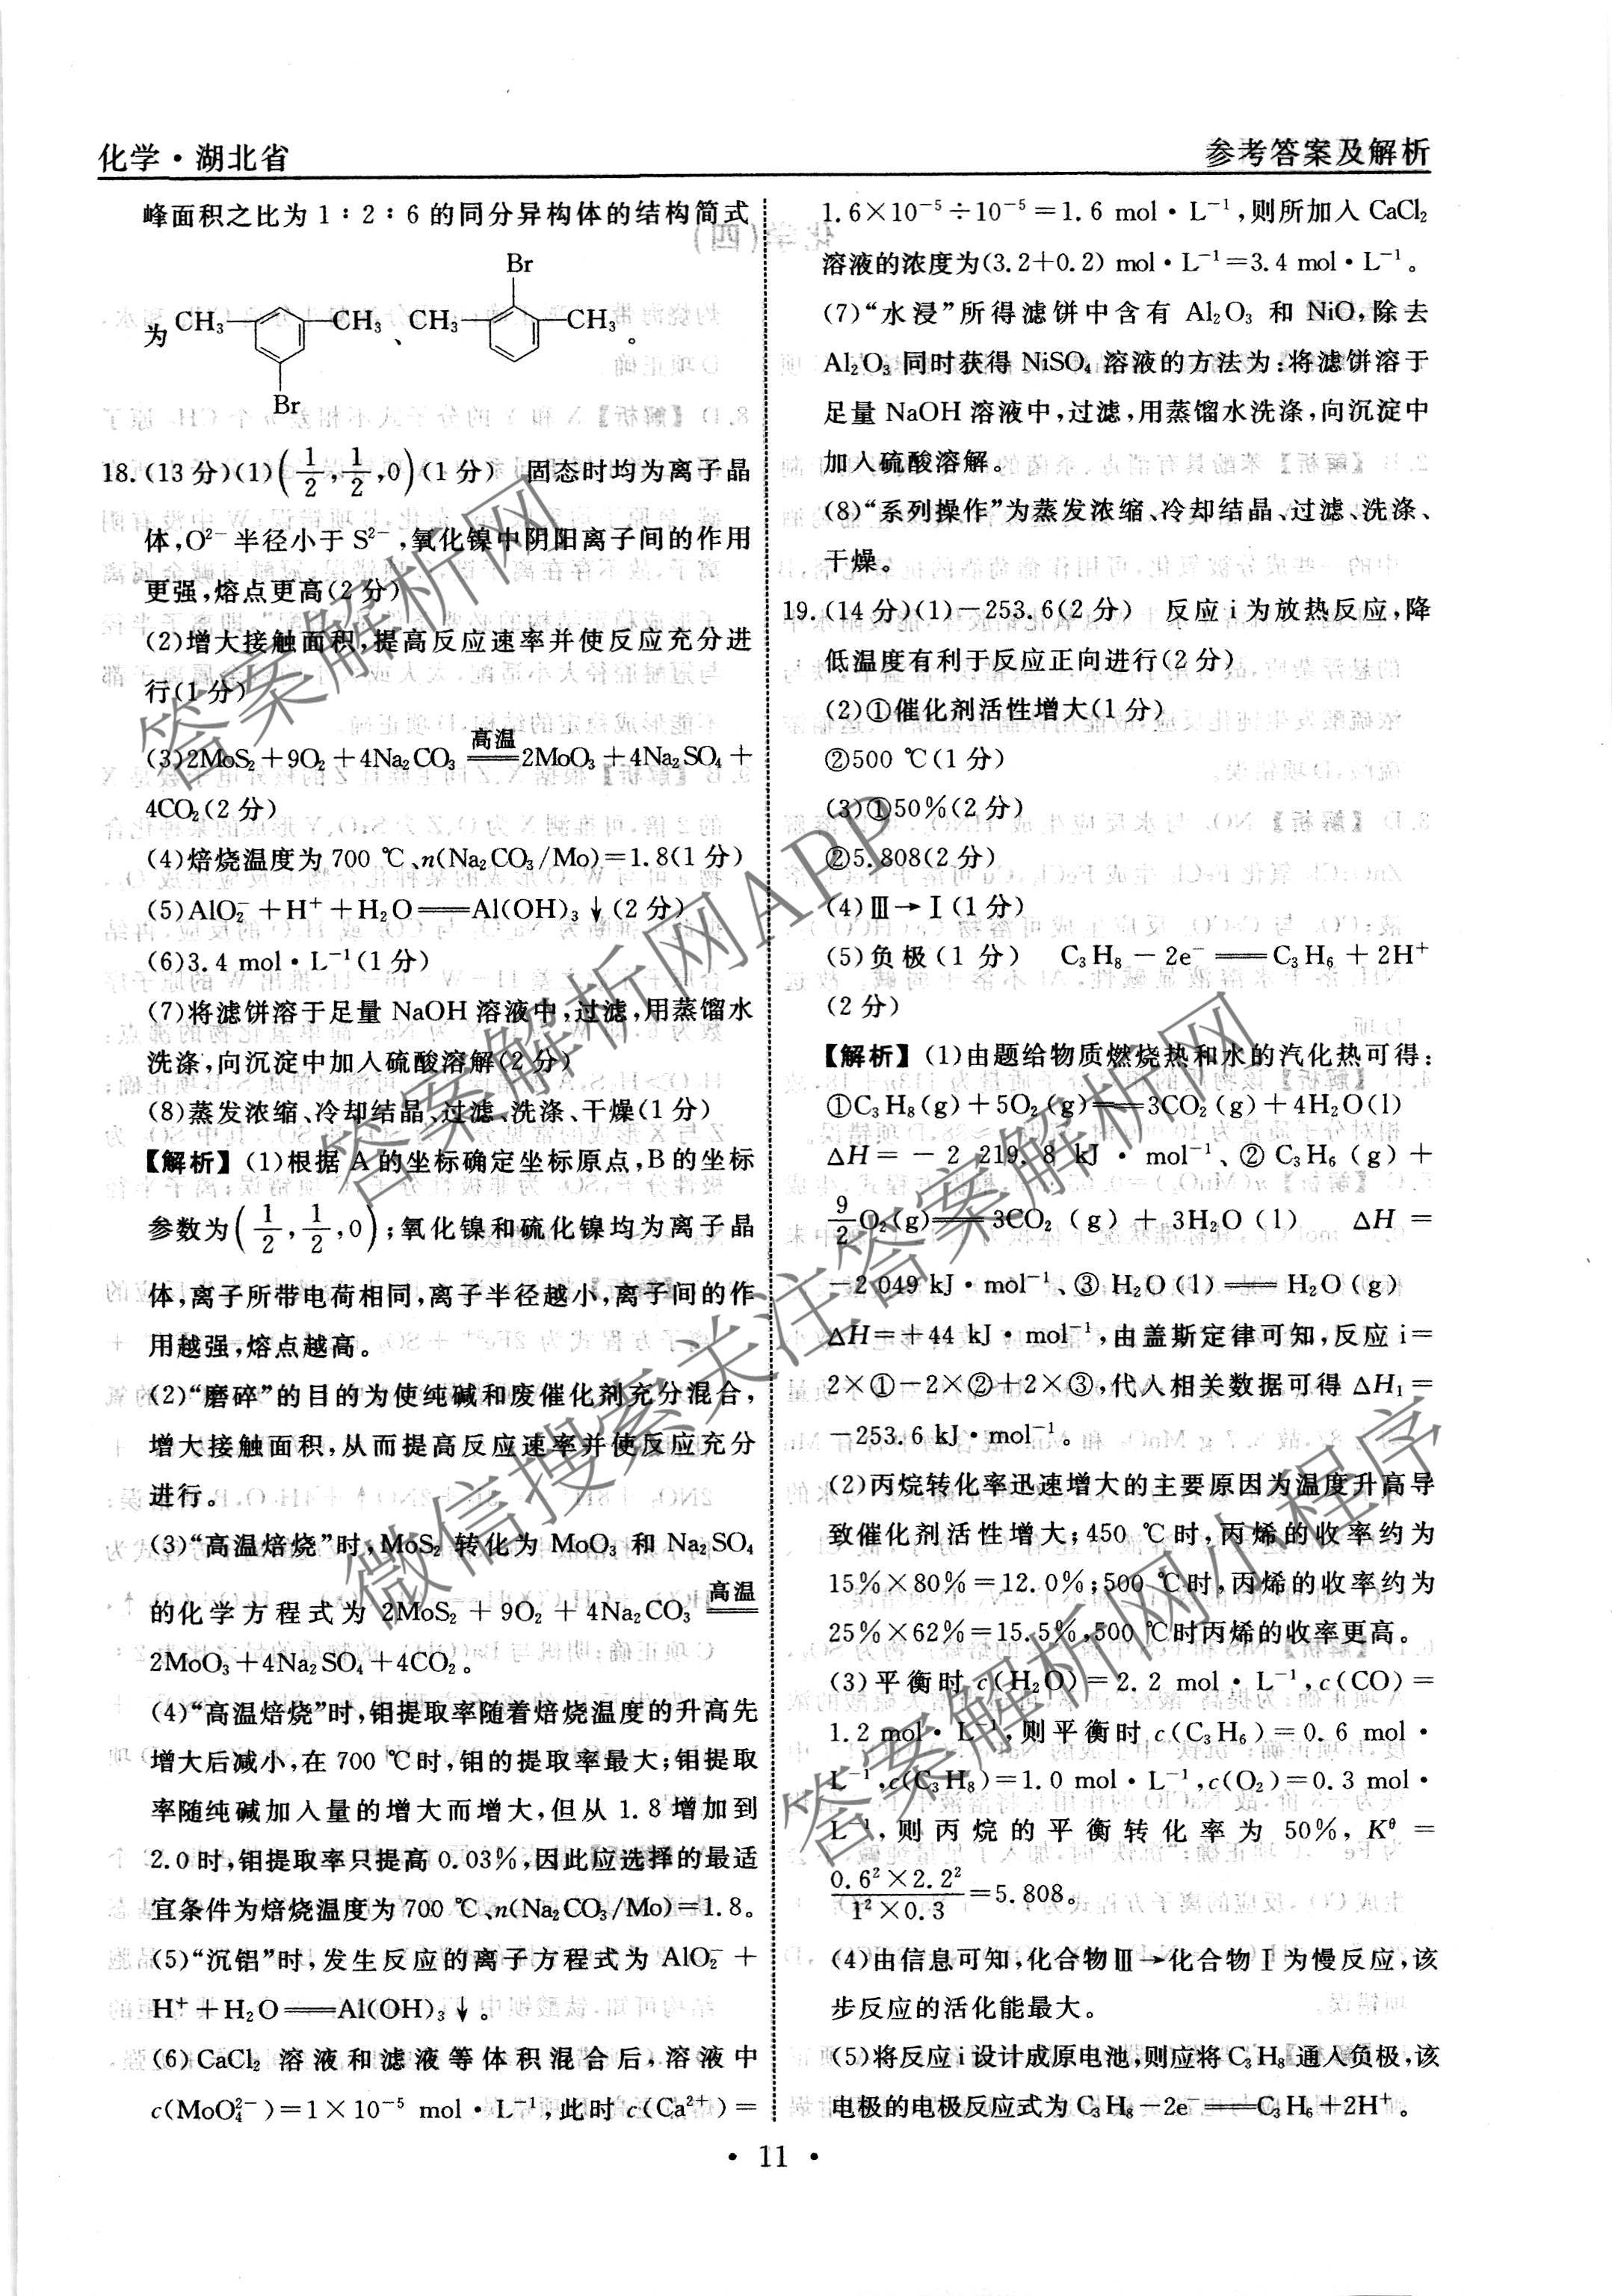 化学·湖北省
参考答案及解析
峰面积之比为 1∶2∶6 的同分异构体的结构简式
Br
为 CH₃ CH₃ 、 CH₃ CH₃ 。
Br
18.(13 分)(1)(1/2,1/2,0)(1 分) 固态时均为离子晶
体,O²⁻ 半径小于 S²⁻,氧化镍中阴阳离子间的作用
更强,熔点更高(2 分)
(2)增大接触面积,提高反应速率并使反应充分进
行(1 分)
(3)2MoS₂+9O₂+4Na₂CO₃ ══高温══ 2MoO₃+4Na₂SO₄+
4CO₂(2 分)
(4)焙烧温度为 700 ℃、n(Na₂CO₃/Mo)=1.8(1 分)
(5)AlO₂⁻+H⁺+H₂O══Al(OH)₃↓(2 分)
(6)3.4 mol·L⁻¹(1 分)
(7)将滤饼溶于足量 NaOH 溶液中,过滤,用蒸馏水
洗涤,向沉淀中加入硫酸溶解(2 分)
(8)蒸发浓缩、冷却结晶、过滤、洗涤、干燥(1 分)
【解析】(1)根据 A 的坐标确定坐标原点,B 的坐标
参数为(1/2,1/2,0);氧化镍和硫化镍均为离子晶
体,离子所带电荷相同,离子半径越小,离子间的作
用越强,熔点越高。
(2)“磨碎”的目的为使纯碱和废催化剂充分混合,
增大接触面积,从而提高反应速率并使反应充分
进行。
(3)“高温焙烧”时,MoS₂ 转化为 MoO₃ 和 Na₂SO₄
的化学方程式为 2MoS₂+9O₂+4Na₂CO₃ ══高温══
2MoO₃+4Na₂SO₄+4CO₂。
(4)“高温焙烧”时,钼提取率随着焙烧温度的升高先
增大后减小,在 700 ℃时,钼的提取率最大;钼提取
率随纯碱加入量的增大而增大,但从 1.8 增加到
2.0 时,钼提取率只提高 0.03%,因此应选择的最适
宜条件为焙烧温度为 700 ℃、n(Na₂CO₃/Mo)=1.8。
(5)“沉铝”时,发生反应的离子方程式为 AlO₂⁻+
H⁺+H₂O══Al(OH)₃↓。
(6)CaCl₂ 溶液和滤液等体积混合后,溶液中
c(MoO₄²⁻)=1×10⁻⁵ mol·L⁻¹,此时 c(Ca²⁺)=
1.6×10⁻⁵÷10⁻⁵=1.6 mol·L⁻¹,则所加入 CaCl₂
溶液的浓度为(3.2+0.2) mol·L⁻¹=3.4 mol·L⁻¹。
(7)“水浸”所得滤饼中含有 Al₂O₃ 和 NiO,除去
Al₂O₃ 同时获得 NiSO₄ 溶液的方法为:将滤饼溶于
足量 NaOH 溶液中,过滤,用蒸馏水洗涤,向沉淀中
加入硫酸溶解。
(8)“系列操作”为蒸发浓缩、冷却结晶、过滤、洗涤、
干燥。
19.(14 分)(1)−253.6(2 分) 反应 i 为放热反应,降
低温度有利于反应正向进行(2 分)
(2)①催化剂活性增大(1 分)
②500 ℃(1 分)
(3)①50%(2 分)
②5.808(2 分)
(4)Ⅲ→Ⅰ(1 分)
(5)负极(1 分) C₃H₈−2e⁻══C₃H₆+2H⁺
(2 分)
【解析】(1)由题给物质燃烧热和水的汽化热可得:
①C₃H₈(g)+5O₂(g)══3CO₂(g)+4H₂O(l)
ΔH=−2 219.8 kJ·mol⁻¹、②C₃H₆(g)+
9/2O₂(g)══3CO₂(g)+3H₂O(l) ΔH=
−2 049 kJ·mol⁻¹、③H₂O(l)══H₂O(g)
ΔH=+44 kJ·mol⁻¹,由盖斯定律可知,反应 i=
2×①−2×②+2×③,代入相关数据可得 ΔH₁=
−253.6 kJ·mol⁻¹。
(2)丙烷转化率迅速增大的主要原因为温度升高导
致催化剂活性增大;450 ℃时,丙烯的收率约为
15%×80%=12.0%;500 ℃时,丙烯的收率约为
25%×62%=15.5%,500 ℃时丙烯的收率更高。
(3)平衡时 c(H₂O)=2.2 mol·L⁻¹,c(CO)=
1.2 mol·L⁻¹,则平衡时 c(C₃H₆)=0.6 mol·
L⁻¹,c(C₃H₈)=1.0 mol·L⁻¹,c(O₂)=0.3 mol·
L⁻¹,则丙烷的平衡转化率为 50%,Kᶿ=
0.6²×2.2²/1²×0.3=5.808。
(4)由信息可知,化合物Ⅲ→化合物Ⅰ为慢反应,该
步反应的活化能最大。
(5)将反应 i 设计成原电池,则应将 C₃H₈ 通入负极,该
电极的电极反应式为 C₃H₈−2e⁻══C₃H₆+2H⁺。
·11·
答案解析网
答案解析网APP
微信搜索关注答案解析网
答案解析网小程序